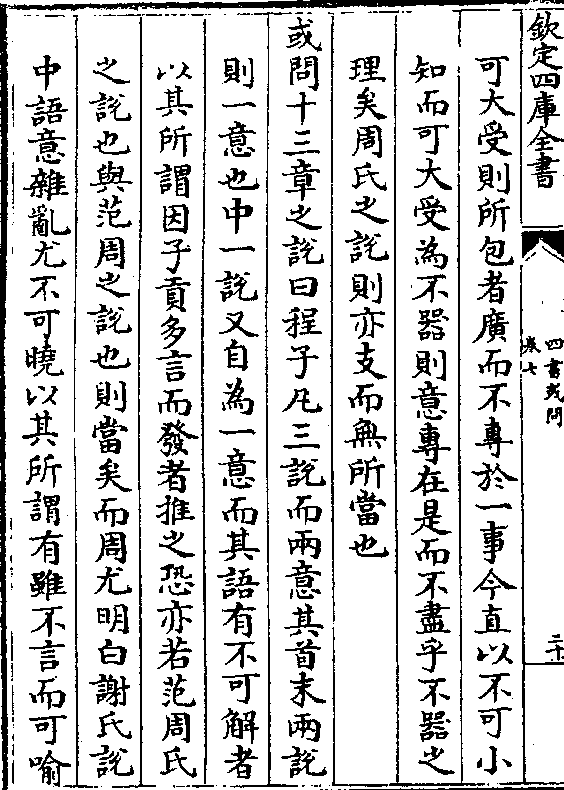 欽定四庫全書
四書或問
卷七
二十
可大受則所包者廣而不專於一事今直以不可小
知而可大受為不器則意專在是而不盡乎不器之
理矣周氏之說則亦支而無所當也
或問十三章之說曰程子凡三說而兩意其首末兩說
則一意也中一說又自為一意而其語有不可解者
以其所謂因子貢多言而發者推之恐亦若范周氏
之說也與范周之說也則當矣而周尤明白謝氏說
中語意雜亂尤不可曉以其所謂有雖不言而可喻